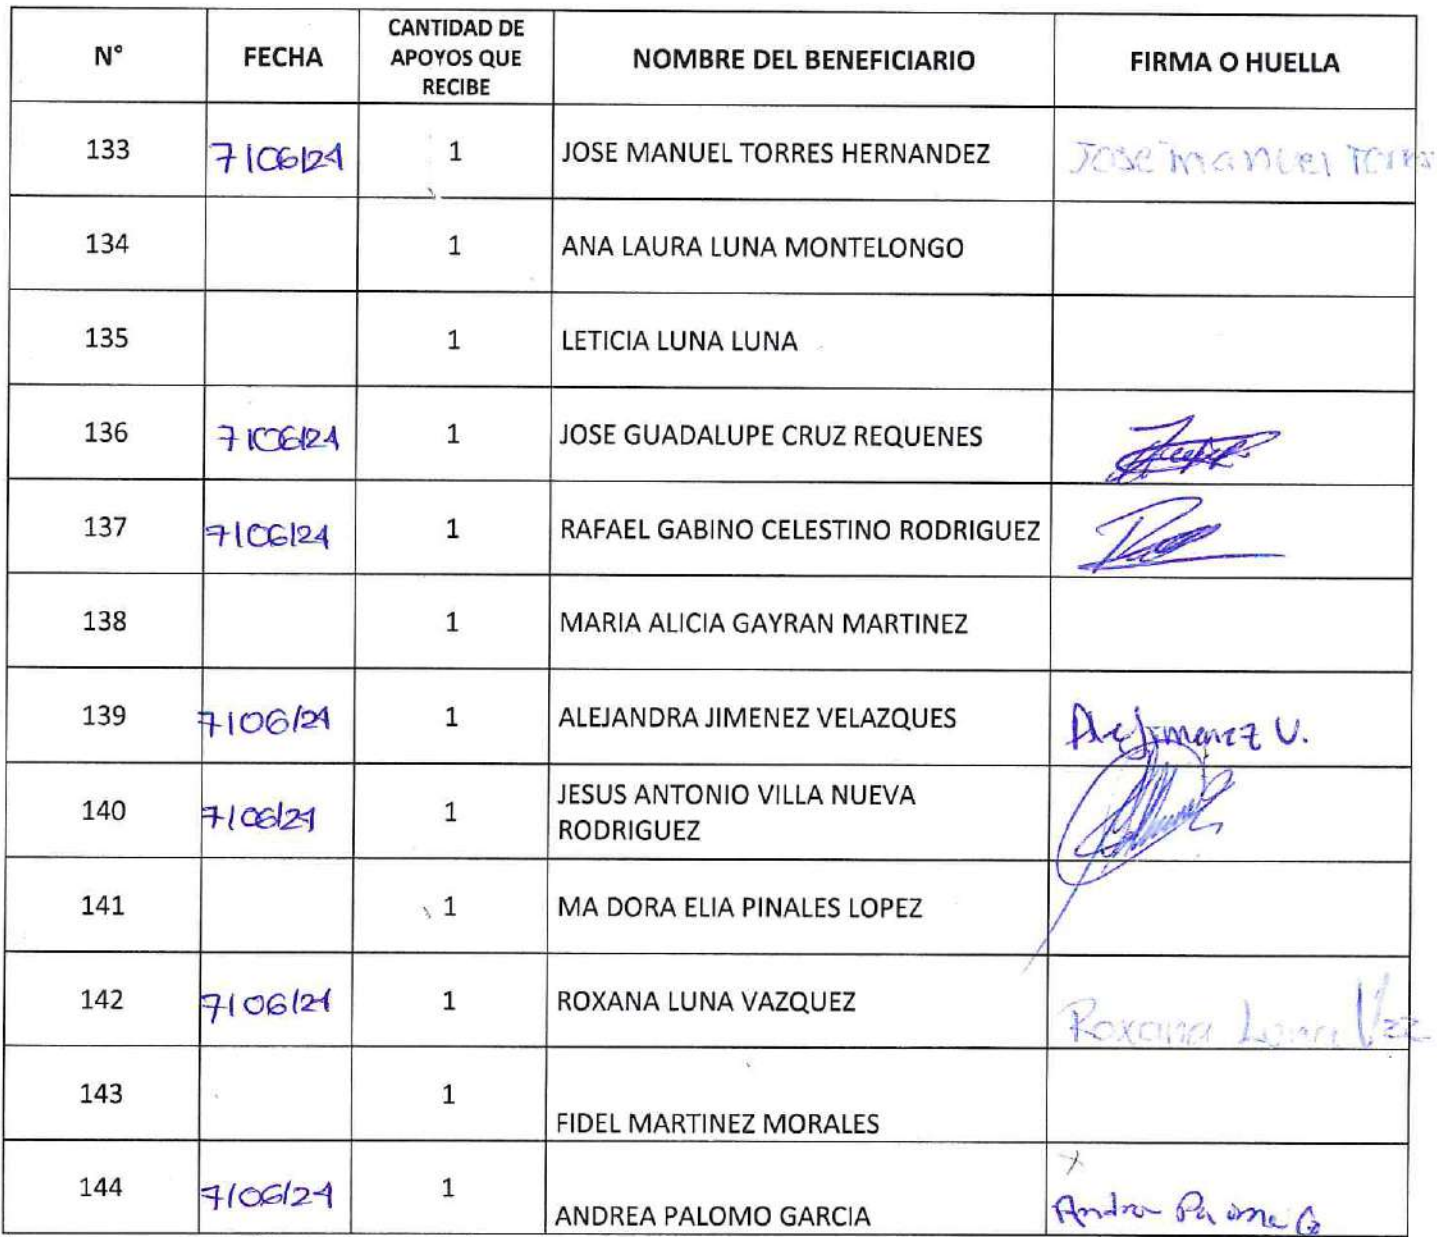 N° FECHA CANTIDAD DE APOYOS QUE RECIBE NOMBRE DEL BENEFICIARIO FIRMA O HUELLA
133 7/06/24 1 JOSE MANUEL TORRES HERNANDEZ Jose manuel Torres
134 1 ANA LAURA LUNA MONTELONGO
135 1 LETICIA LUNA LUNA
136 7/06/24 1 JOSE GUADALUPE CRUZ REQUENES
137 7/06/24 1 RAFAEL GABINO CELESTINO RODRIGUEZ
138 1 MARIA ALICIA GAYRAN MARTINEZ
139 7/06/24 1 ALEJANDRA JIMENEZ VELAZQUES Ale Jimenez V.
140 7/06/24 1 JESUS ANTONIO VILLA NUEVA
RODRIGUEZ
141 1 MA DORA ELIA PINALES LOPEZ
142 7/06/24 1 ROXANA LUNA VAZQUEZ Roxana Luna Vzz
143 1 FIDEL MARTINEZ MORALES
144 7/06/24 1 ANDREA PALOMO GARCIA x